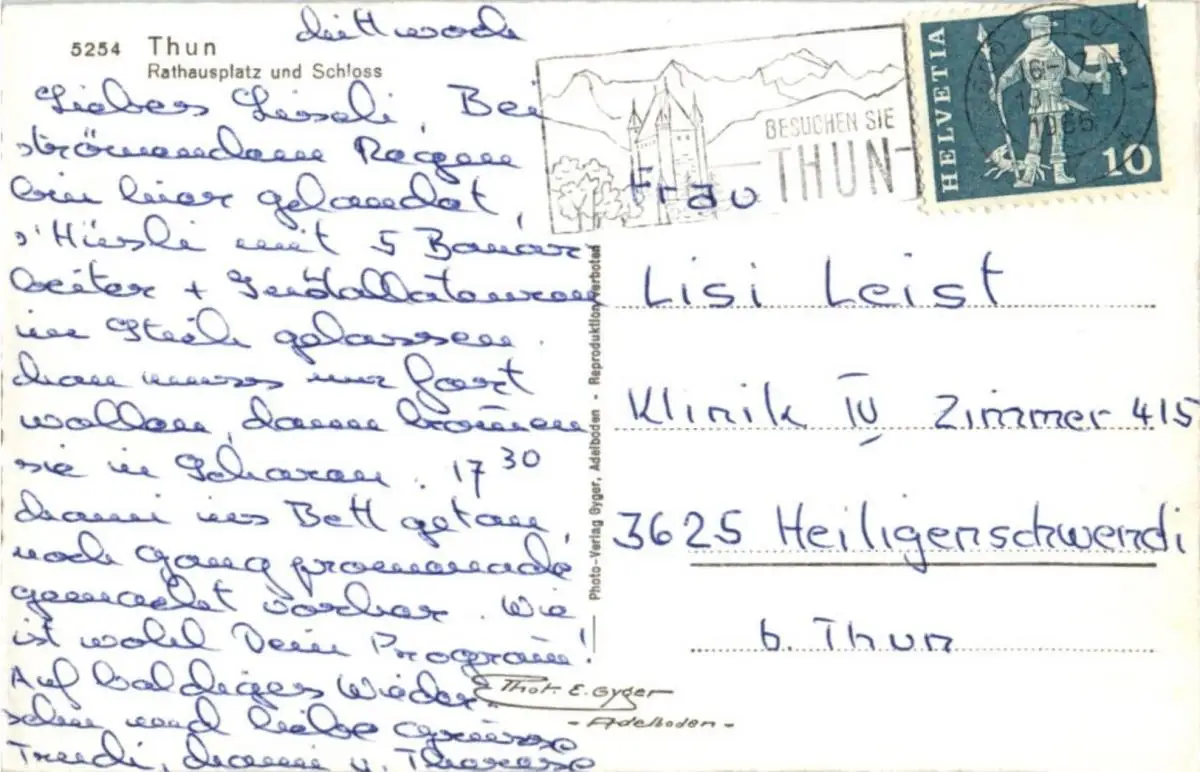 Mittwoch
5254 Thun
Rathausplatz und Schloss
Liebes Liseli, Bei
strömendem Regen
bin hier gelandet,
s'Hüsli mit 5 Bauar
beiter + Installateuren
im Stich gelassen.
Man muss nur fort
wollen, dann kommen
sie in Scharen. 17 30
Mami ins Bett getan,
noch Gang promenade
gemacht vorher. Wie
ist wohl Dein Program!
Auf baldiges Wieder
sehn und liebe Grüsse
Trudi, Mami u. Therese
BESUCHEN SIE
THUN
HELVETIA
10
THUN
16-
1965
Frau
Lisi Leist
Klinik IV Zimmer 415
3625 Heiligenschwendi
b. Thun
Photo-Verlag Gyger, Adelboden - Reproduktion verboten
Phot. E. Gyger
- Adelboden -